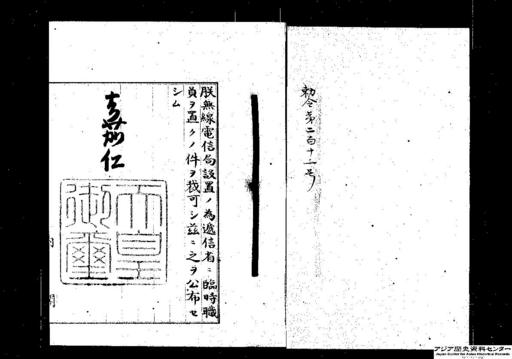 勅令第二百十一号
朕無線電信局設置ノ為逓信省ニ臨時職
員ヲ置クノ件ヲ裁可シ茲ニ之ヲ公布セ
シム
嘉仁
天皇
御璽
内閣
アジア歴史資料センター
Japan Center for Asian Historical Records